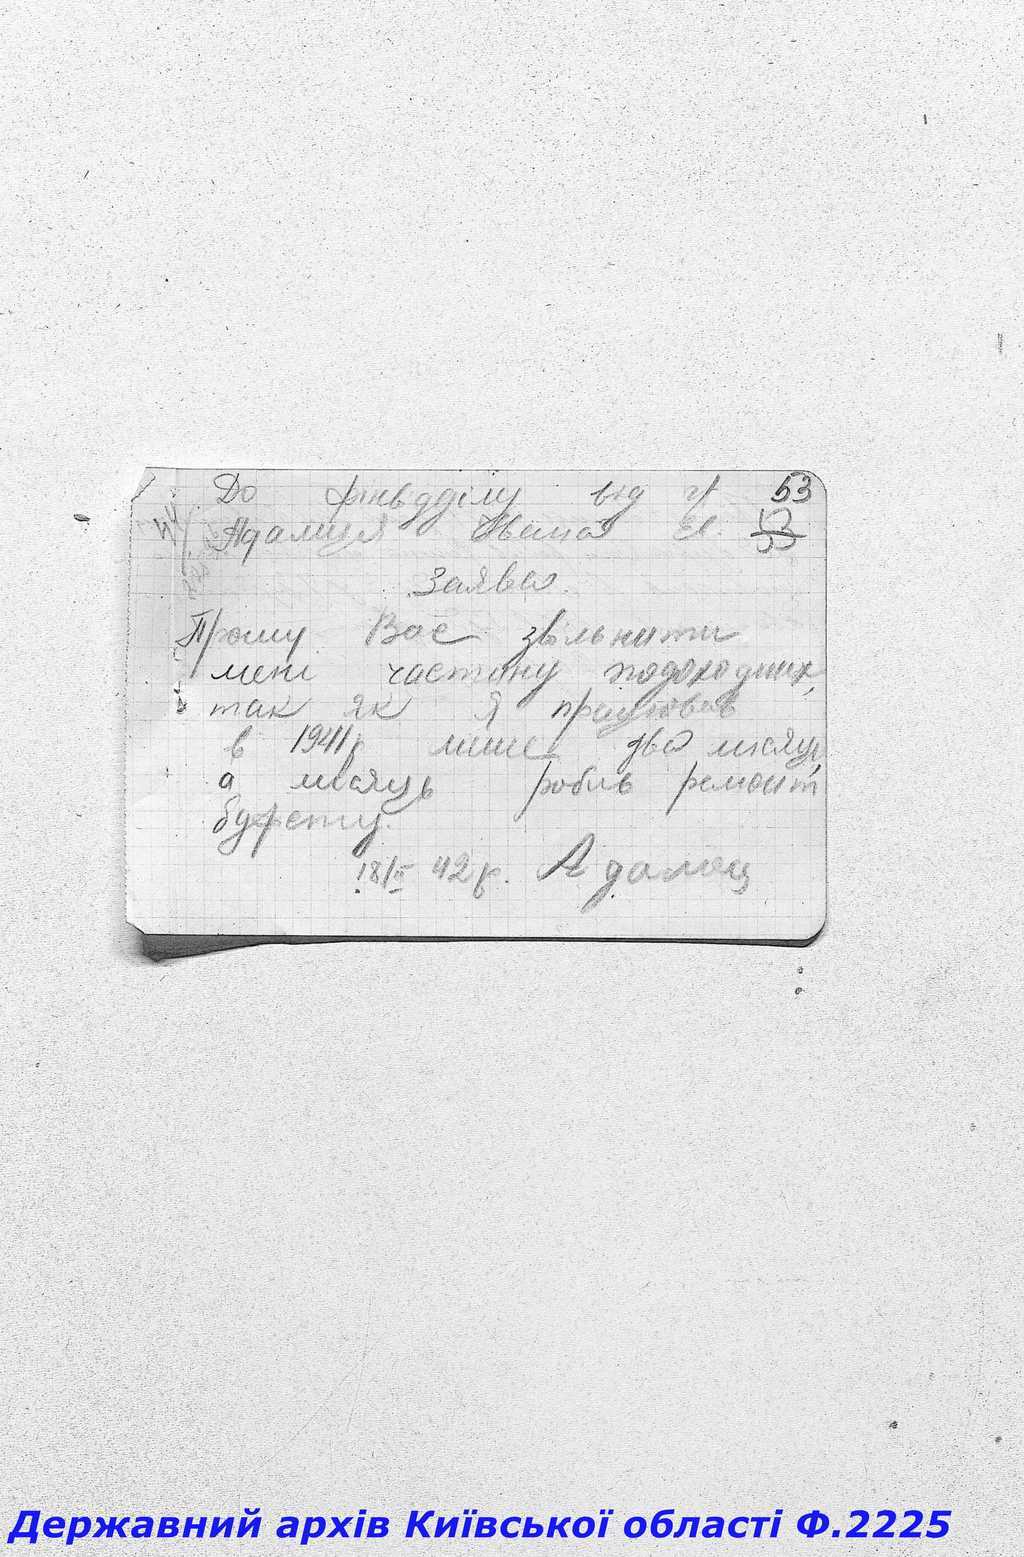 До фінвідділу від гр. 53
Адамця Івана Ів.
Заява.
Прошу Вас звільнити
мені частину подоходних,
так як я працював
в 1941 р. лише два місяці,
а місяць робив ремонт
буфету.
18/II 42 р. Адамец
Державний архів Київської області Ф.2225